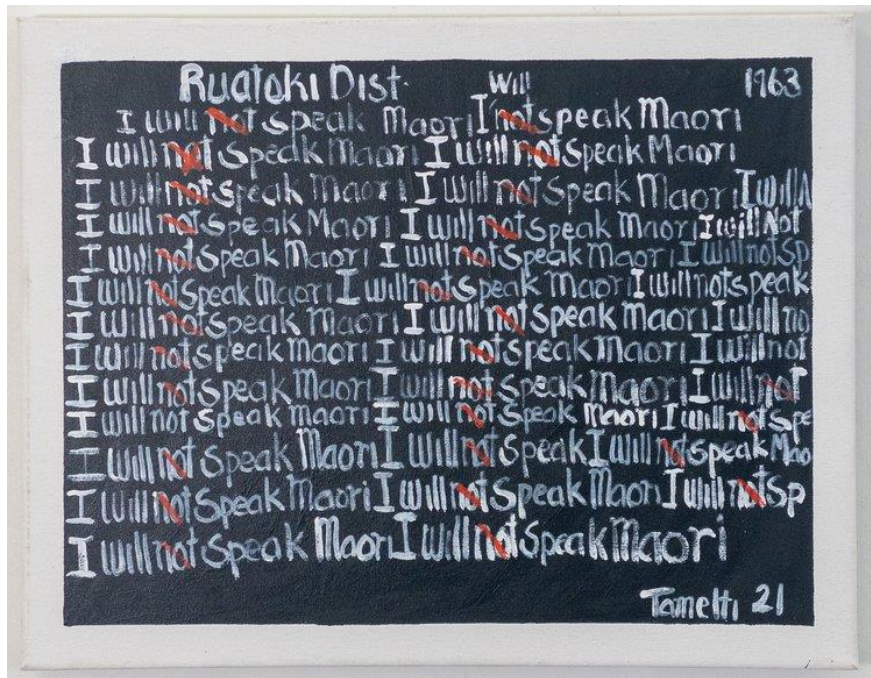 Ruatoki Dist. 1963
will
I will not speak Maori I not speak Maori
I will not speak Maori I will not speak Maori
I will not speak Maori I will not speak Maori I will n
I will not speak Maori I will not speak Maori I will Not
I will not speak Maori I will not speak Maori I will not sp
I will not speak Maori I will not speak Maori I will not speak
I will not speak Maori I will not speak Maori I will no
I will not speak Maori I will not speak Maori I will not
I will not speak Maori I will not speak Maori I will not
I will not speak maori I will not speak maori I will not spe
I will not speak Maori I will not speak I will not speak Mao
I will not speak Maori I will not speak Maori I will not sp
I will not speak Maori I will not speak Maori
Tame Iti 21